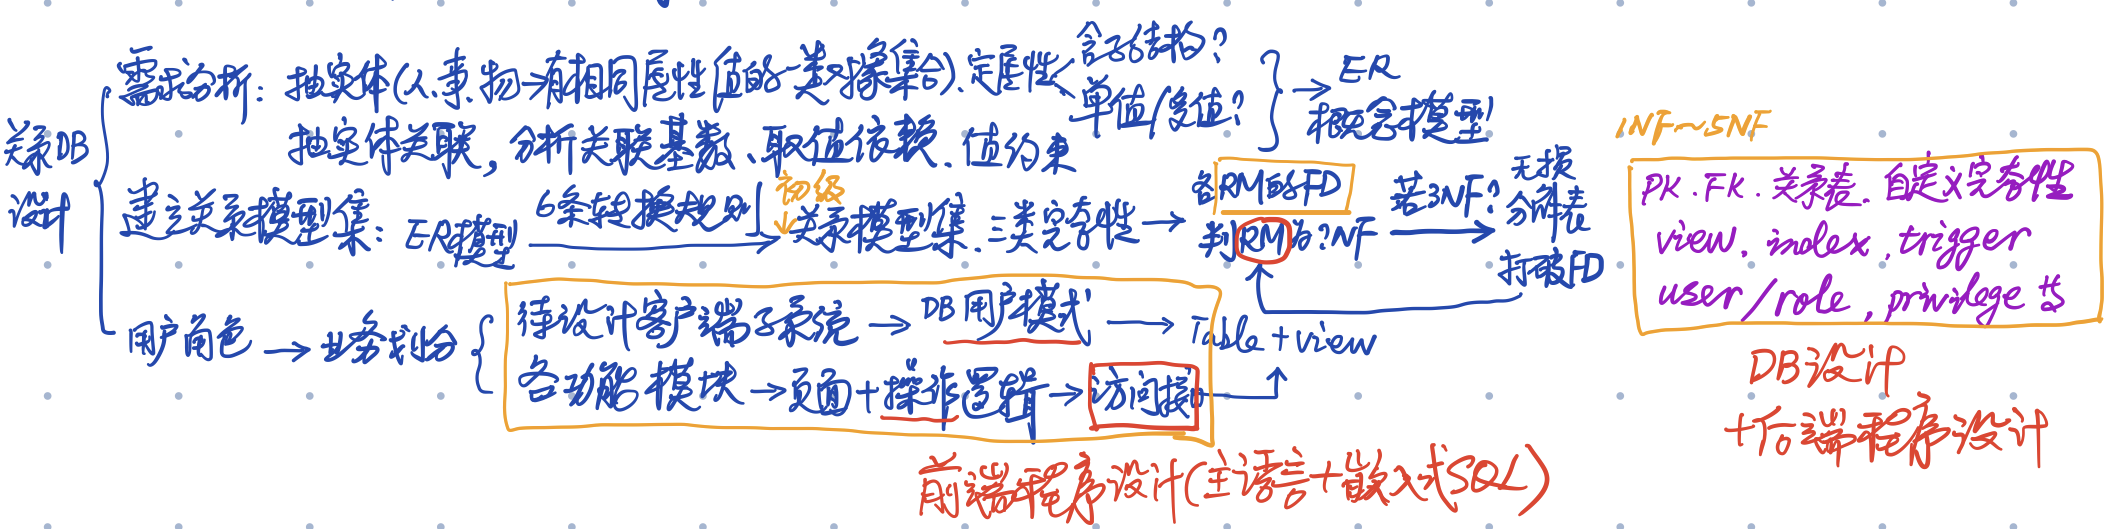 关系DB
设计
需求分析: 抽实体(人.事.物→有相同属性值的一类对象集合).定属性<
含子结构?
单值/多值?
→ER
概念模型
抽实体关联, 分析关联基数、取值依赖、值约束
建立关系模型集: ER模型
6条转换规则
初级
关系模型集.三类完备性→
各RM的FD
判RM为?NF
若3NF?
无损
分解表
打破FD
用户角色→业务划分
待设计客户端子系统→DB用户模式→Table+view
各功能模块→页面+操作逻辑→访问接口
前端程序设计(主语言+嵌入式SQL)
1NF~5NF
PK.FK.关系表.自定义完备性
view, index, trigger
user/role, privilege 等
DB设计
+后端程序设计